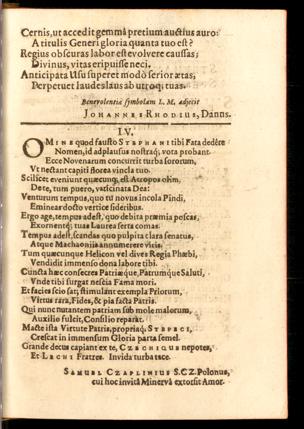 Cernis, ut accedit gemmâ pretium auctius auro:
A titulis Generi gloria quanta tuo est?
Regius obscuras labor est evolvere caussas;
Divinus, vitas eripuisse neci.
Anticipata Usu superet modò serior ætas,
Perpetuet laudes laus ab utroq; tuas.
Benevolentiæ symbolam L. M. adjecit
JOHANNES RHODIUS, Danus.
LV.
OMINE quod fausto STEPHANI tibi Fata dedêre
Nomen, id adplausus nostraq; vota probant.
Ecce Novenarum concurrit turba sororum,
Ut nectant capiti florea vincla tuo.
Scilicet eveniunt quæcunq; est Atropos olim,
Dete, tum puero, vaticinata Dea:
Venturum tempus, quo tu novus incola Pindi,
Emineas docto vertice sideribus.
Ergo age, tempus adest, quo debita præmia poscas,
Exornentq; tuas Laurea serta comas.
Tempus adest, scandas quo pulpita clara senatus,
Atque Machaoniis annumerere viris.
Tum quæcunque Helicon vel dives Regia Phœbi,
Vendidit immenso dona labore tibi.
Cuncta hæc consecres Patriæque, Patrumque Saluti,
Unde tibi surgat nescia Fama mori.
Et facies scio sat; stimulant exempla Priorum,
Virtus rara, Fides, & pia facta Patris.
Qui nunc nutantem patriam sub mole malorum,
Auxilio fulcit, Consilio reparat.
Macte ista Virtute Patris, propriaq; STEPECI,
Crescat in immensum Gloria parta semel.
Grande decus capiant ex te, CZECHIQUE nepotes,
Et LECHI Fratres. Invida turba tace.
SAMUEL CZAPLINIUS S.CZ. Polonus,
cui hoc invitâ Minervâ extorsit Amor.